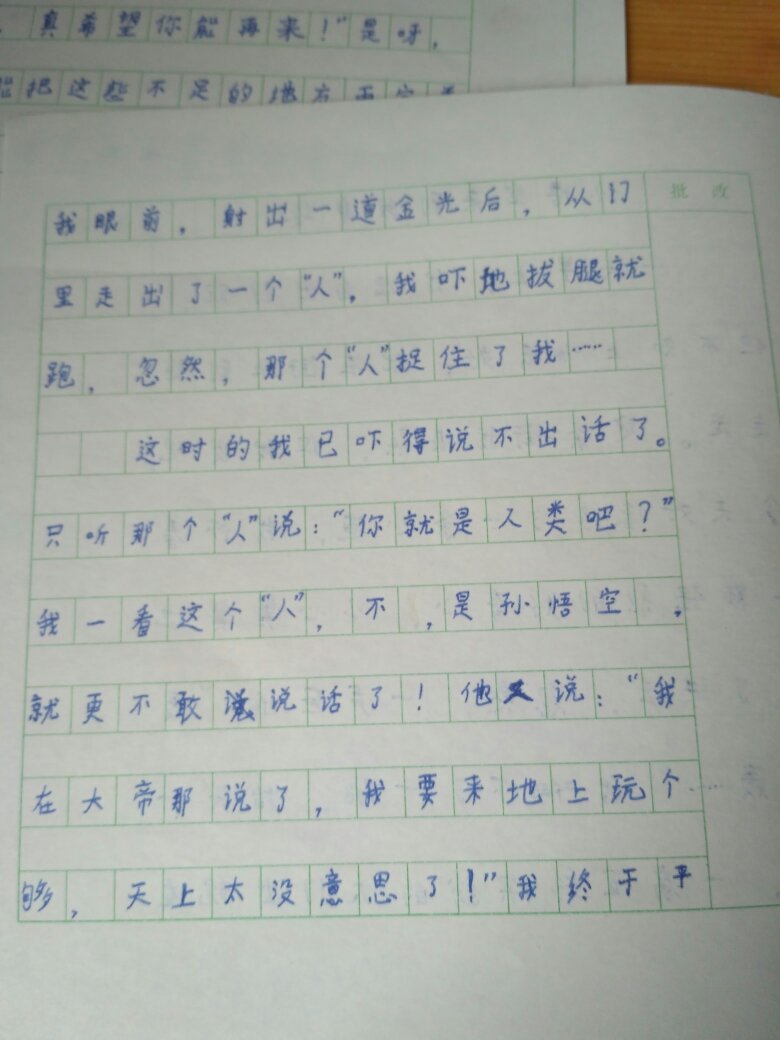 真希望你能再来！”是呀，
把这些不足的地方
批改
我眼前，射出一道金光后，从门
里走出了一个“人”。我吓地拔腿就
跑，忽然，那个“人”捉住了我……
这时的我已吓得说不出话了。
只听那个“人”说：“你就是人类吧？”
我一看这个“人”，不，是孙悟空，
就更不敢说话了！他又说：“我
在大帝那说了，我要来地上玩个
够，天上太没意思了！”我终于平